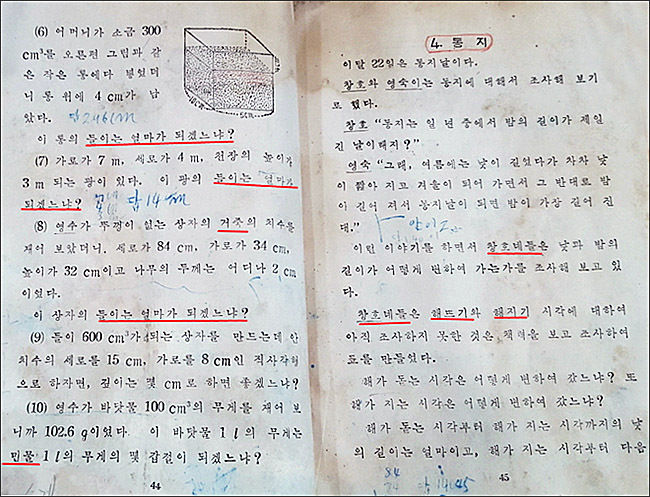 (6) 어머니가 소금 300
cm³를 오른편 그림과 같
은 작은 통에다 넣었더
니 통 위에 4 cm가 남
았다.
이 통의 들이는 얼마가 되겠느냐?
(7) 가로가 7 m, 세로가 4 m, 천장의 높이가
3 m 되는 광이 있다. 이 광의 들이는 얼마가
되겠느냐? 답 14
(8) 영수가 뚜껑이 없는 상자의 거죽의 치수를
재어 보았더니, 세로가 84 cm, 가로가 34 cm,
높이가 32 cm이고 나무의 두께는 어디나 2 cm
이었다.
이 상자의 들이는 얼마가 되겠느냐?
(9) 들이 600 cm³가 되는 상자를 만드는데 안
치수의 세로를 15 cm, 가로를 8 cm인 직사각형
으로 하자면, 깊이는 몇 cm로 하면 좋겠느냐?
(10) 영수가 바닷물 100 cm³의 무게를 재어 보
니까 102.6 g이었다. 이 바닷물 1 l의 무게는
민물 1 l의 무게의 몇 갑절이 되겠느냐?
44
4. 동지
이달 22일은 동지날이다.
창호와 영숙이는 동지에 대해서 조사해 보기
로 했다.
창호 “동지는 일 년 중에서 밤의 길이가 제일
긴 날이래지?”
영숙 “그래, 여름에는 낮이 길었다가 차차 낮
이 짧아 지고 겨울이 되어 가면서 그 반대로 밤
이 길어 져서 동지날이 되면 밤이 가장 길어 진
대.”
이런 이야기를 하면서 창호네들은 낮과 밤의
길이가 어떻게 변하여 가는가를 조사해 보고 있
다.
창호네들은 해뜨기와 해지기 시각에 대하여
아직 조사하지 못한 것은 책력을 보고 조사하여
표를 만들었다.
해가 돋는 시각은 어떻게 변하여 갔느냐? 또
해가 지는 시각은 어떻게 변하여 갔느냐?
해가 돋는 시각부터 해가 지는 시각까지의 낮
의 길이는 얼마이고, 해가 지는 시각부터 다음
84
45